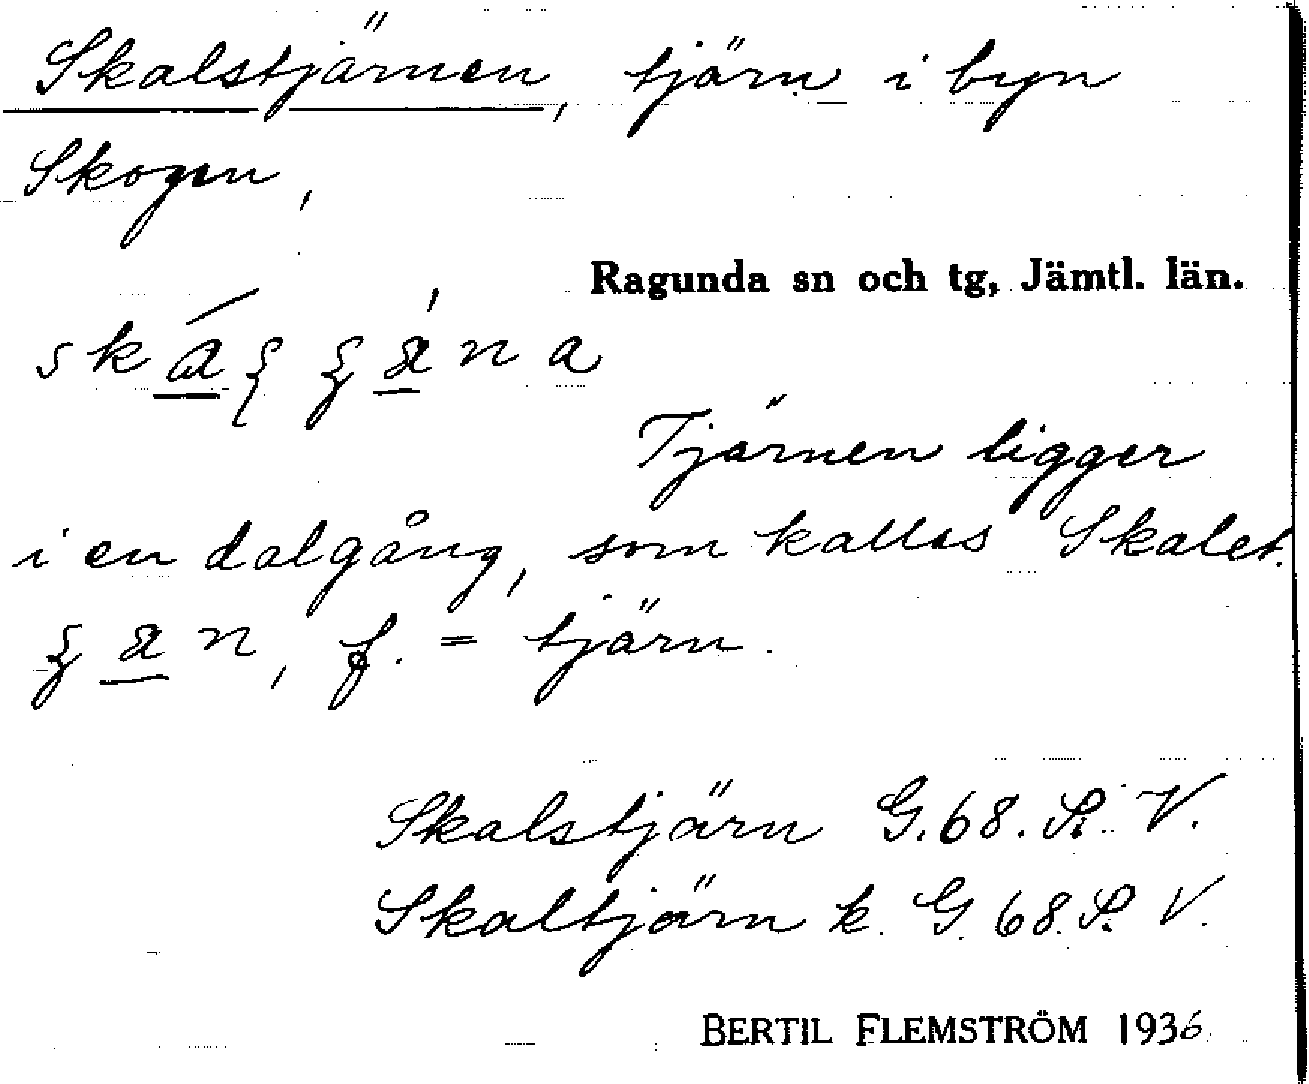 Skalstjärnen, tjärn i byn
Skogen,
Ragunda sn och tg, Jämtl. län.
Tjärnen ligger
i en dalgång, som kallas Skalet.
f. = tjärn.
Skalstjärn G. 68. S. V.
Skaltjärn k. G. 68. S. V.
BERTIL FLEMSTRÖM 1936